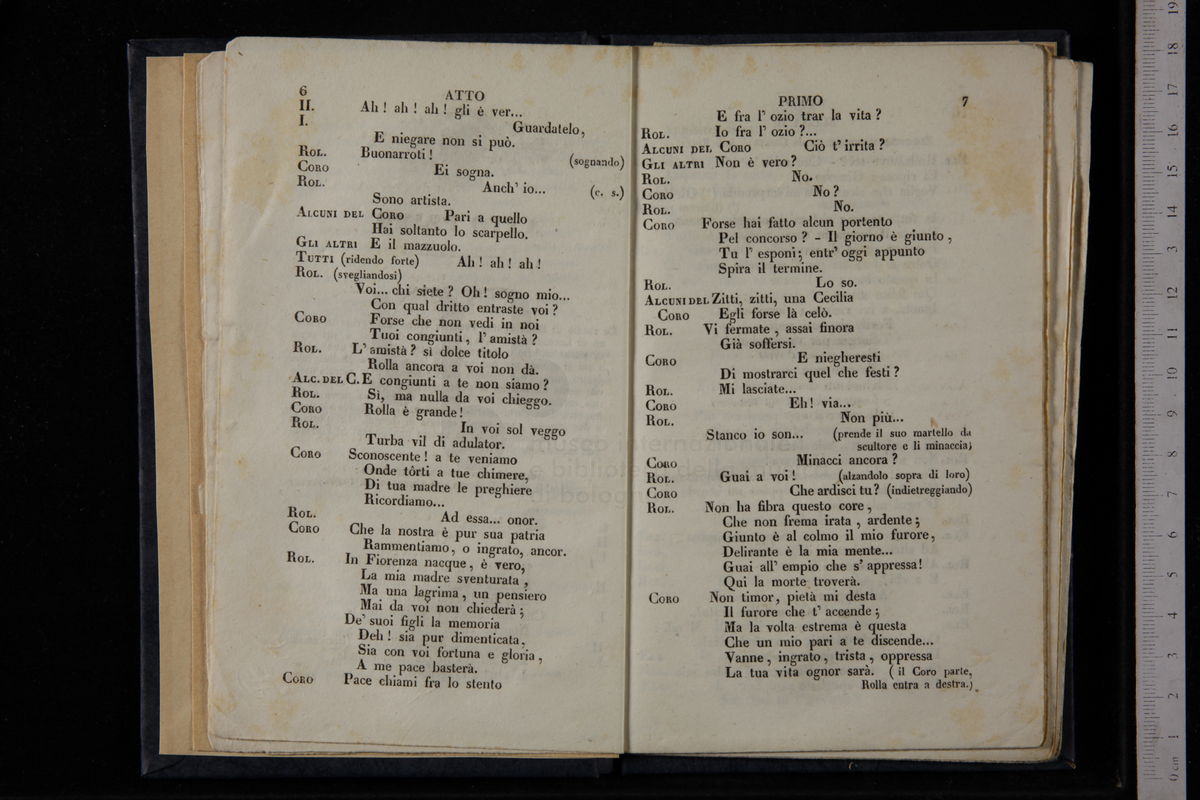 6 ATTO
II. Ah! ah! ah! gli è ver...
I. Guardatelo,
E niegare non si può.
ROL. Buonarroti! (sognando)
CORO Ei sogna.
ROL. Anch' io... (c. s.)
Sono artista.
ALCUNI DEL CORO Pari a quello
Hai soltanto lo scarpello.
GLI ALTRI E il mazzuolo.
TUTTI (ridendo forte) Ah! ah! ah!
ROL. (svegliandosi)
Voi... chi siete? Oh! sogno mio...
Con qual dritto entraste voi?
CORO Forse che non vedi in noi
Tuoi congiunti, l' amistà?
ROL. L' amistà? sì dolce titolo
Rolla ancora a voi non dà.
ALC. DEL C. E congiunti a te non siamo?
ROL. Sì, ma nulla da voi chieggo.
CORO Rolla è grande!
ROL. In voi sol veggo
Turba vil di adulator.
CORO Sconoscente! a te veniamo
Onde tôrti a tue chimere,
Di tua madre le preghiere
Ricordiamo...
ROL. Ad essa... onor.
CORO Che la nostra è pur sua patria
Rammentiamo, o ingrato, ancor.
ROL. In Fiorenza nacque, è vero,
La mia madre sventurata,
Ma una lagrima, un pensiero
Mai da voi non chiederà;
De' suoi figli la memoria
Deh! sia pur dimenticata,
Sia con voi fortuna e gloria,
A me pace basterà.
CORO Pace chiami fra lo stento
PRIMO 7
E fra l' ozio trar la vita?
ROL. Io fra l' ozio?...
ALCUNI DEL CORO Ciò t' irrita?
GLI ALTRI Non è vero?
ROL. No.
CORO No?
ROL. No.
CORO Forse hai fatto alcun portento
Pel concorso? - Il giorno è giunto,
Tu l' esponi; entr' oggi appunto
Spira il termine.
ROL. Lo so.
ALCUNI DEL Zitti, zitti, una Cecilia
CORO Egli forse là celò.
ROL. Vi fermate, assai finora
Già soffersi.
CORO E niegheresti
Di mostrarci quel che festi?
ROL. Mi lasciate...
CORO Eh! via...
ROL. Non più...
Stanco io son... (prende il suo martello da
scultore e li minaccia)
CORO Minacci ancora?
ROL. Guai a voi! (alzandolo sopra di loro)
CORO Che ardisci tu? (indietreggiando)
ROL. Non ha fibra questo core,
Che non frema irata, ardente;
Giunto è al colmo il mio furore,
Delirante è la mia mente...
Guai all' empio che s' appressa!
Qui la morte troverà.
CORO Non timor, pietà mi desta
Il furore che t' accende;
Ma la volta estrema è questa
Che un mio pari a te discende...
Vanne, ingrato, trista, oppressa
La tua vita ognor sarà. (il Coro parte,
Rolla entra a destra.)